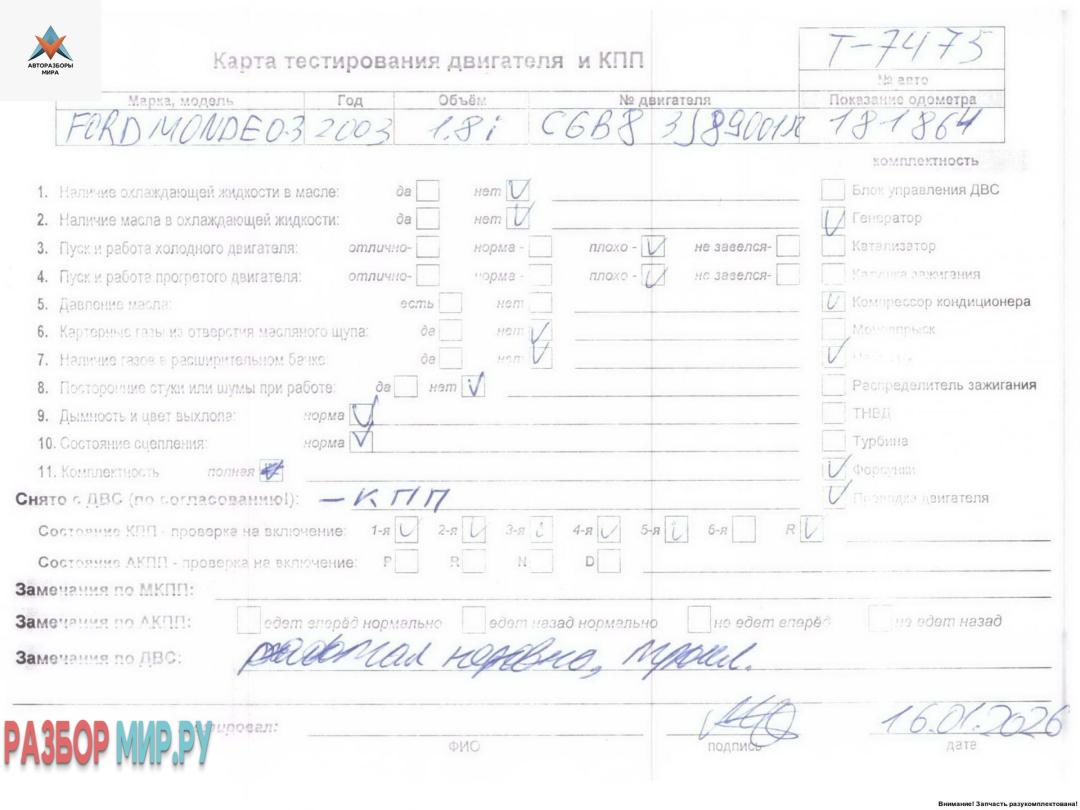 АВТОРАЗБОРЫ
МИРА
Карта тестирования двигателя и КПП
Т-7475
№ авто
Марка, модель Год Объём № двигателя Показание одометра
FORD MONDEO3 2003 1.8i CGBB 3J89001 181864
комплектность
1. Наличие охлаждающей жидкости в масле: да нет Блок управления ДВС
2. Наличие масла в охлаждающей жидкости: да нет Генератор
3. Пуск и работа холодного двигателя: отлично- норма - плохо - не завелся- Катализатор
4. Пуск и работа прогретого двигателя: отлично- норма - плохо - не завелся- Катушка зажигания
5. Давление масла: есть нет Компрессор кондиционера
6. Картерные газы из отверстия масляного щупа: да нет
7. Наличие газов в расширительном бачке: да нет
8. Посторонние стуки или шумы при работе: да нет Распределитель зажигания
9. Дымность и цвет выхлопа: норма ТНВД
10. Состояние сцепления: норма Турбина
11. Комплектность полная Форсунки
Снято с ДВС (по согласованию!): – КПП Проводка двигателя
Состояние КПП - проверка на включение: 1-я 2-я 3-я 4-я 5-я 6-я R
Состояние АКПП - проверка на включение: P R N D
Замечания по МКПП:
Замечания по АКПП: едет вперёд нормально едет назад нормально не едет вперёд не едет назад
Замечания по ДВС: работал неровно, троил.
16.01.2026
ФИО подпись дата
РАЗБОР МИР.РУ
Внимание! Запчасть разукомплектована!